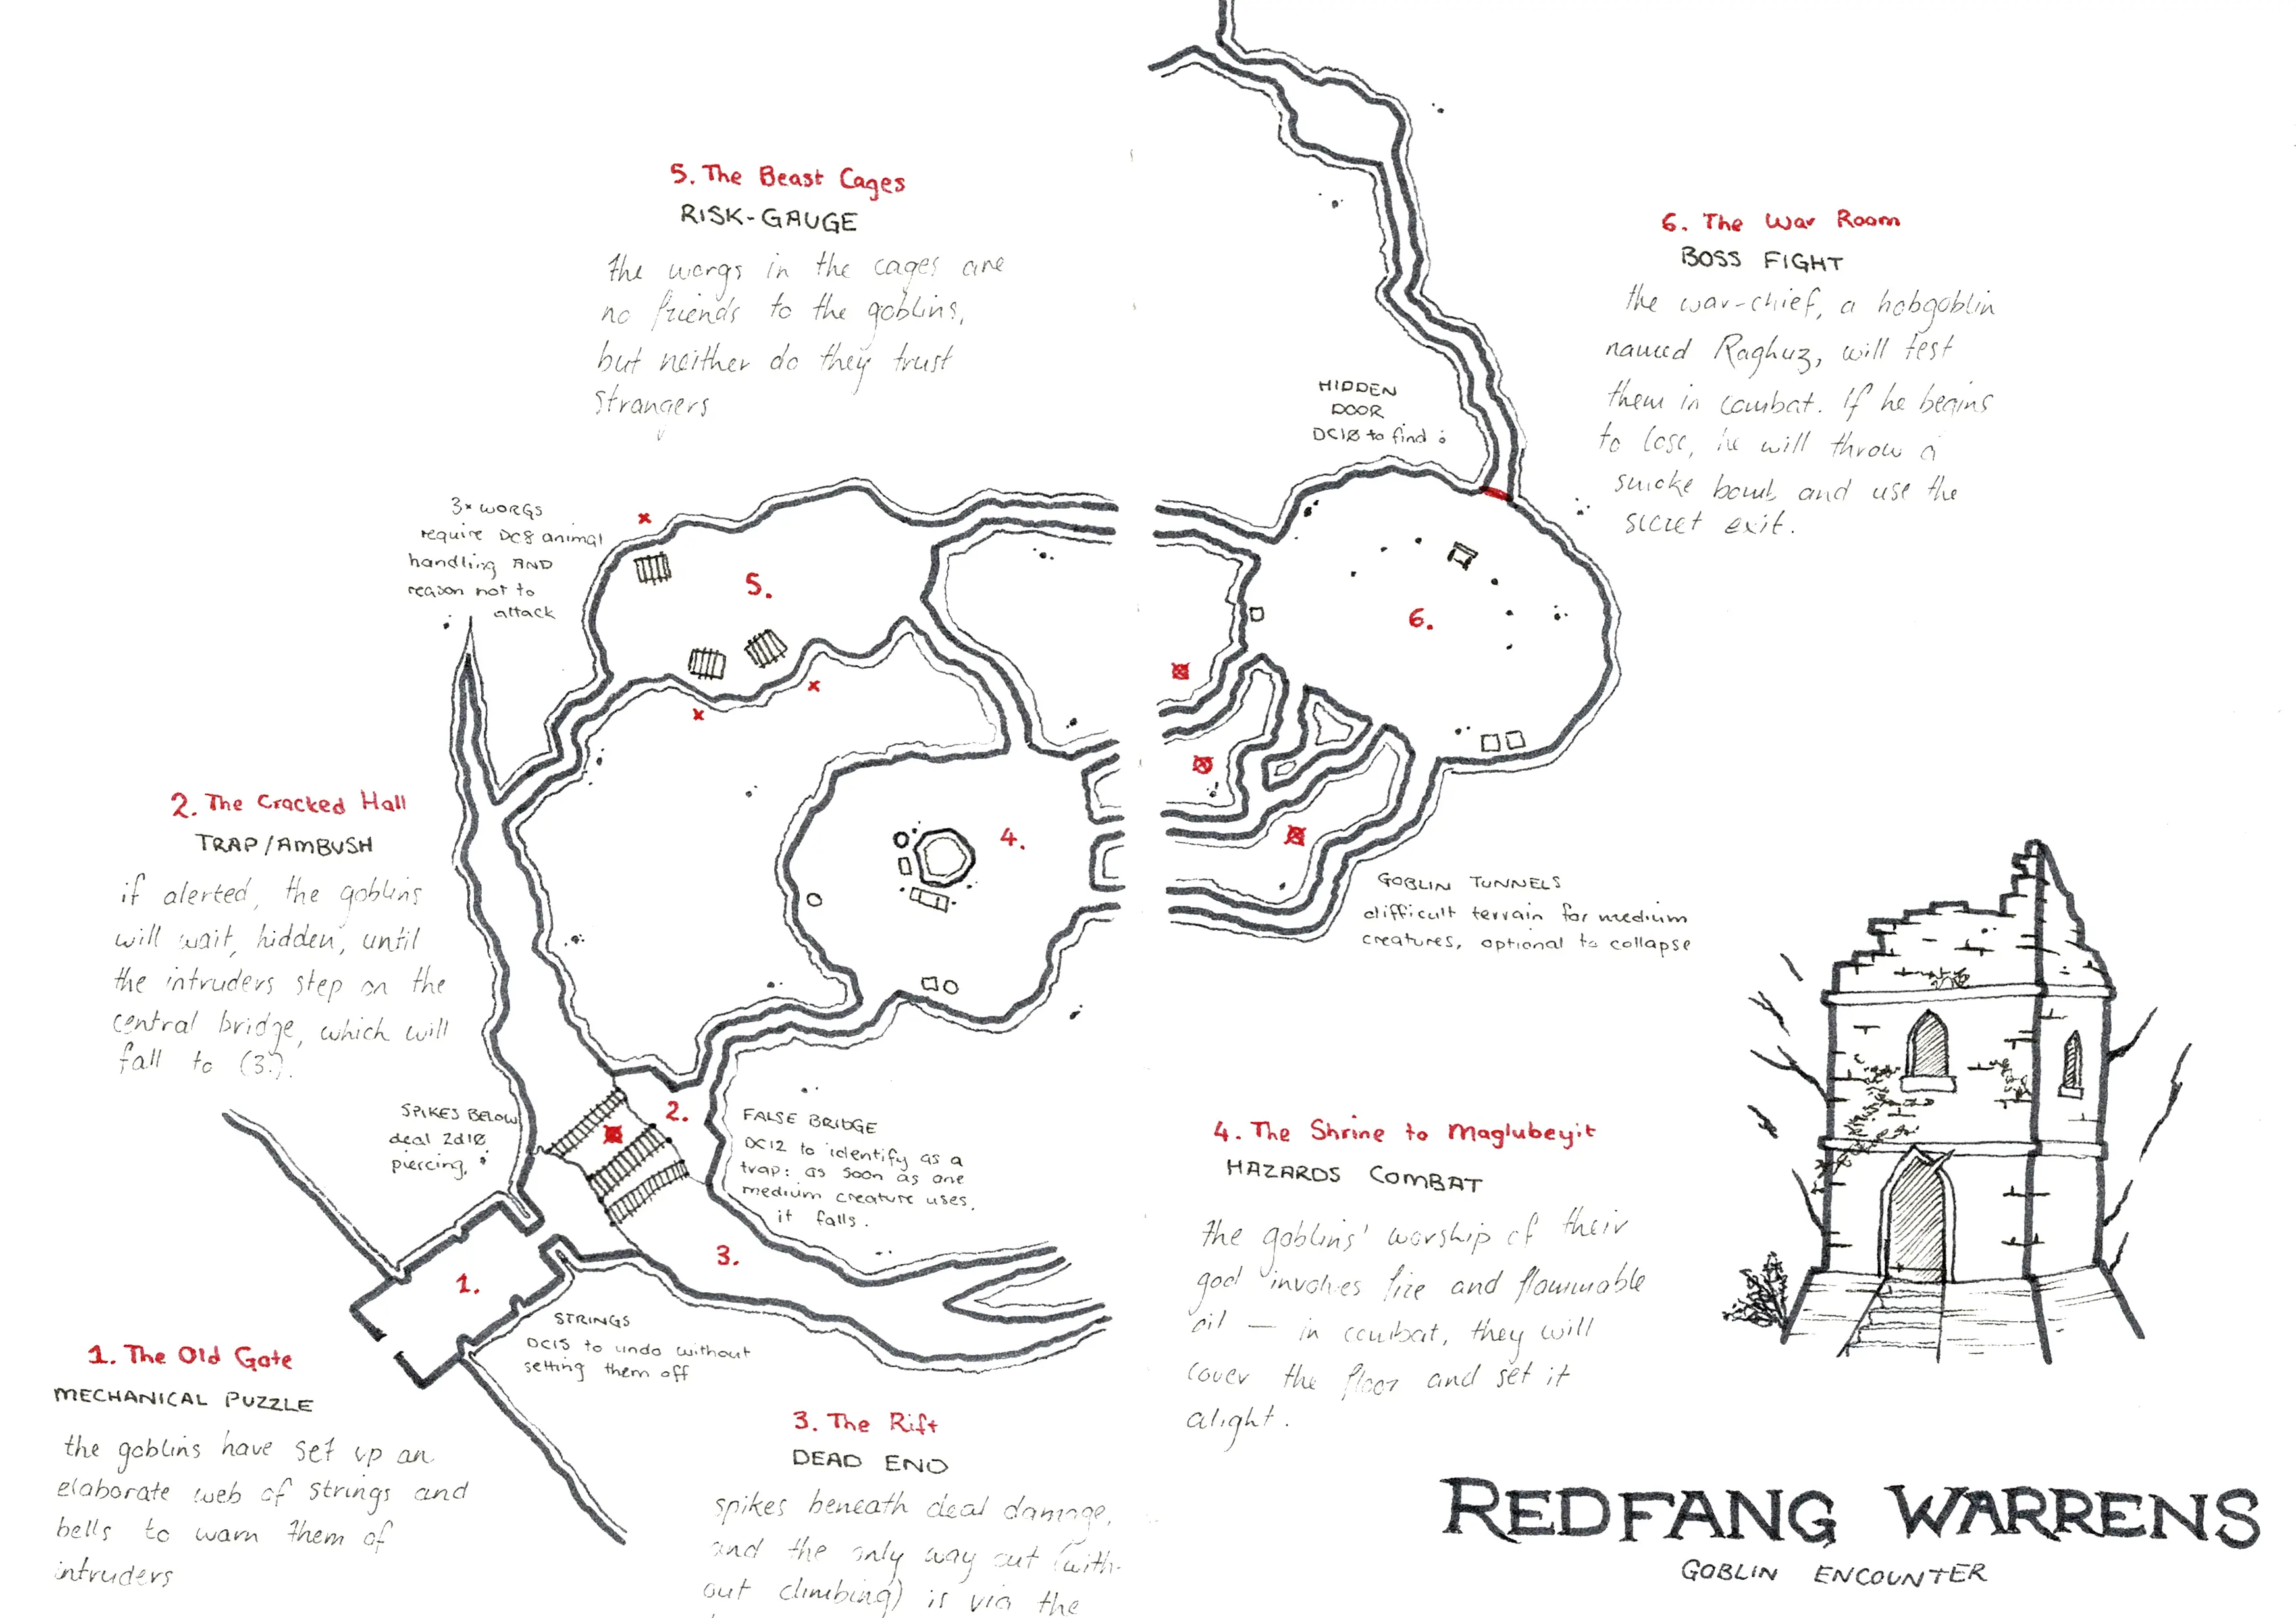 5. The Beast Cages
RISK-GAUGE
the worgs in the cages are
no friends to the goblins,
but neither do they trust
strangers
6. The War Room
BOSS FIGHT
the war-chief, a hobgoblin
named Raghuz, will test
them in combat. If he begins
to lose, he will throw a
smoke bomb and use the
secret exit.
HIDDEN
DOOR
DC10 to find
3x WORGS
require DC8 animal
handling AND
reason not to
attack
5.
6.
2. The Cracked Hall
TRAP/AMBUSH
if alerted, the goblins
will wait, hidden, until
the intruders step on the
central bridge, which will
fall to (3.).
4.
GOBLIN TUNNELS
difficult terrain for medium
creatures, optional to collapse
SPIKES BELOW
deal 2d10
piercing.
2.
FALSE BRIDGE
DC12 to identify as a
trap: as soon as one
medium creature uses,
it falls.
3.
1.
STRINGS
DC15 to undo without
setting them off
4. The Shrine to Maglubeyit
HAZARDS COMBAT
the goblins' worship of their
god involves fire and flammable
oil — in combat, they will
cover the floor and set it
alight.
1. The Old Gate
MECHANICAL PUZZLE
the goblins have set up an
elaborate web of strings and
bells to warn them of
intruders
3. The Rift
DEAD END
spikes beneath deal damage,
and the only way out (with-
out climbing) is via the
REDFANG WARRENS
GOBLIN ENCOUNTER